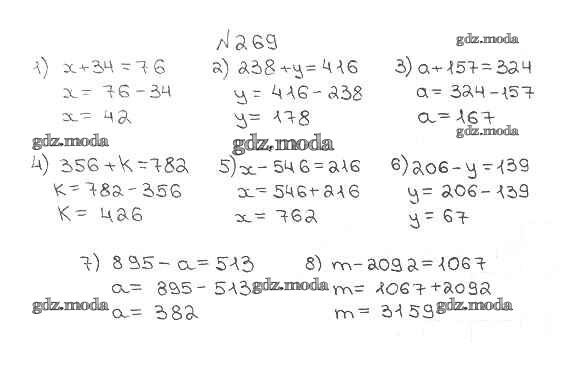 №269
gdz.moda
1) x+34=76 2) 238+y=416 3) a+157=324
x= 76-34 y= 416-238 a= 324-157
x= 42 y= 178 a= 167
gdz.moda gdz.moda gdz.moda
4) 356+K=782 5) x-546=216 6) 206-y=139
K=782-356 x=546+216 y=206-139
K= 426 x= 762 y= 67
7) 895-a=513 8) m-2092=1067
a= 895-513 gdz.moda m= 1067+2092
gdz.moda a= 382 m= 3159 gdz.moda